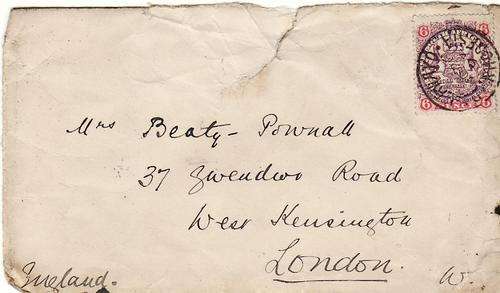 6 6
Mrs Beaty-Pownall
37 Gwendwr Road
West Kensington
London.
England. W.
6 6